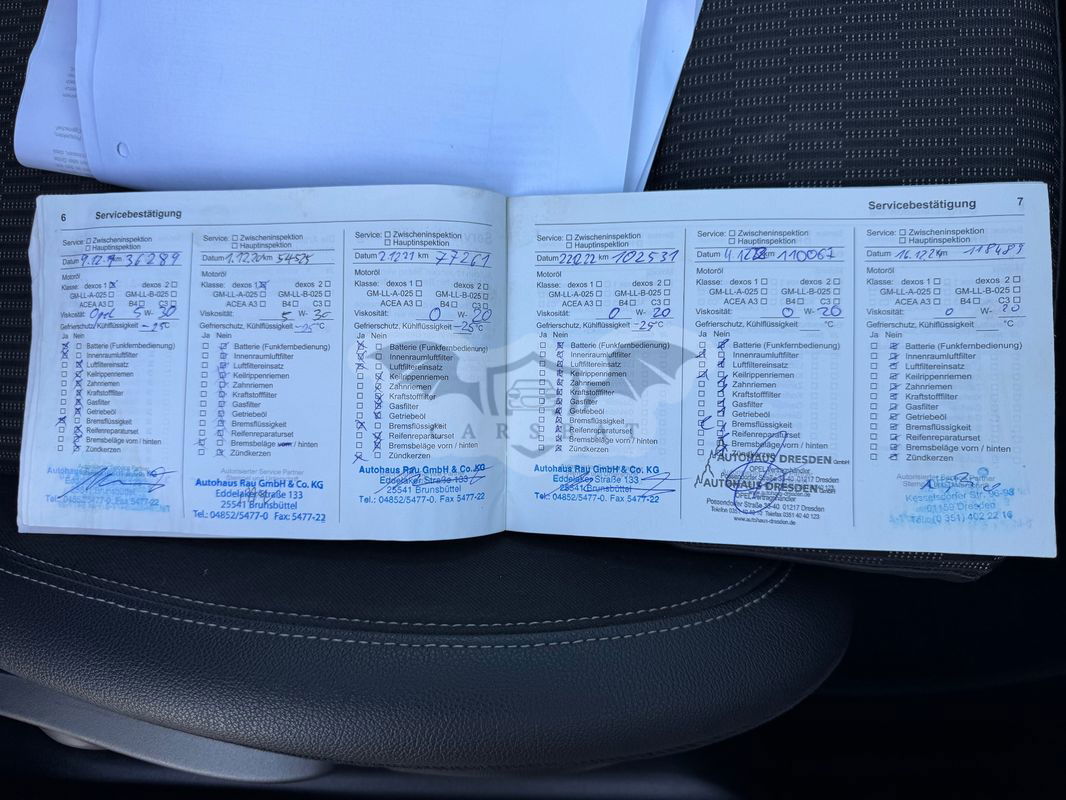 6 Servicebestätigung
Service: Zwischeninspektion
Hauptinspektion
Datum km 36289
Motoröl
Klasse: dexos 1 dexos 2
GM-LL-A-025 GM-LL-B-025
ACEA A3 B4 C3
Viskosität: Opel 5 W- 30
Gefrierschutz, Kühlflüssigkeit -25 °C
Ja Nein
Batterie (Funkfernbedienung)
Innenraumluftfilter
Luftfiltereinsatz
Keilrippenriemen
Zahnriemen
Kraftstofffilter
Gasfilter
Getriebeöl
Bremsflüssigkeit
Reifenreparaturset
Bremsbeläge vorn / hinten
Zündkerzen
Service: Zwischeninspektion
Hauptinspektion
Datum 1.12.20 km 54525
Motoröl
Klasse: dexos 1 dexos 2
GM-LL-A-025 GM-LL-B-025
ACEA A3 B4 C3
Viskosität: 5 W- 30
Gefrierschutz, Kühlflüssigkeit -25 °C
Ja Nein
Batterie (Funkfernbedienung)
Innenraumluftfilter
Luftfiltereinsatz
Keilrippenriemen
Zahnriemen
Kraftstofffilter
Gasfilter
Getriebeöl
Bremsflüssigkeit
Reifenreparaturset
Bremsbeläge vorn / hinten
Zündkerzen
Autorisierter Service Partner
Autohaus Rau GmbH & Co. KG
Eddelaker Straße 133
25541 Brunsbüttel
Tel.: 04852/5477-0 Fax: 5477-22
Service: Zwischeninspektion
Hauptinspektion
Datum 2.12.21 km 77261
Motoröl
Klasse: dexos 1 dexos 2
GM-LL-A-025 GM-LL-B-025
ACEA A3 B4 C3
Viskosität: 0 W- 20
Gefrierschutz, Kühlflüssigkeit -25 °C
Ja Nein
Batterie (Funkfernbedienung)
Innenraumluftfilter
Luftfiltereinsatz
Keilrippenriemen
Zahnriemen
Kraftstofffilter
Gasfilter
Getriebeöl
Bremsflüssigkeit
Reifenreparaturset
Bremsbeläge vorn / hinten
Zündkerzen
Autohaus Rau GmbH & Co. KG
Eddelaker Straße 133
25541 Brunsbüttel
Tel.: 04852/5477-0 Fax 5477-22
Servicebestätigung 7
Service: Zwischeninspektion
Hauptinspektion
Datum km 102531
Motoröl
Klasse: dexos 1 dexos 2
GM-LL-A-025 GM-LL-B-025
ACEA A3 B4 C3
Viskosität: 0 W- 20
Gefrierschutz, Kühlflüssigkeit -25 °C
Ja Nein
Batterie (Funkfernbedienung)
Innenraumluftfilter
Luftfiltereinsatz
Keilrippenriemen
Zahnriemen
Kraftstofffilter
Gasfilter
Getriebeöl
Bremsflüssigkeit
Reifenreparaturset
Bremsbeläge vorn / hinten
Zündkerzen
Autohaus Rau GmbH & Co. KG
Eddelaker Straße 133
25541 Brunsbüttel
Tel.: 04852/5477-0 Fax 5477-22
Service: Zwischeninspektion
Hauptinspektion
Datum km 110067
Motoröl
Klasse: dexos 1 dexos 2
GM-LL-A-025 GM-LL-B-025
ACEA A3 B4 C3
Viskosität: 0 W- 20
Gefrierschutz, Kühlflüssigkeit °C
Ja Nein
Batterie (Funkfernbedienung)
Innenraumluftfilter
Luftfiltereinsatz
Keilrippenriemen
Zahnriemen
Kraftstofffilter
Gasfilter
Getriebeöl
Bremsflüssigkeit
Reifenreparaturset
Bremsbeläge vorn / hinten
AUTOHAUS DRESDEN GmbH
AUTOHAUS DRESDEN
Possendorfer Straße 38-40 01217 Dresden
www.autohaus-dresden.de
Service: Zwischeninspektion
Hauptinspektion
Datum 16.12.24 km 118489
Motoröl
Klasse: dexos 1 dexos 2
GM-LL-A-025 GM-LL-B-025
ACEA A3 B4 C3
Viskosität: 0 W- 20
Gefrierschutz, Kühlflüssigkeit °C
Ja Nein
Batterie (Funkfernbedienung)
Innenraumluftfilter
Luftfiltereinsatz
Keilrippenriemen
Zahnriemen
Kraftstofffilter
Gasfilter
Getriebeöl
Bremsflüssigkeit
Reifenreparaturset
Bremsbeläge vorn / hinten
Zündkerzen
Kesselsdorfer Str. 96-98
01159 Dresden
Tel. (0 351) 402 22 16